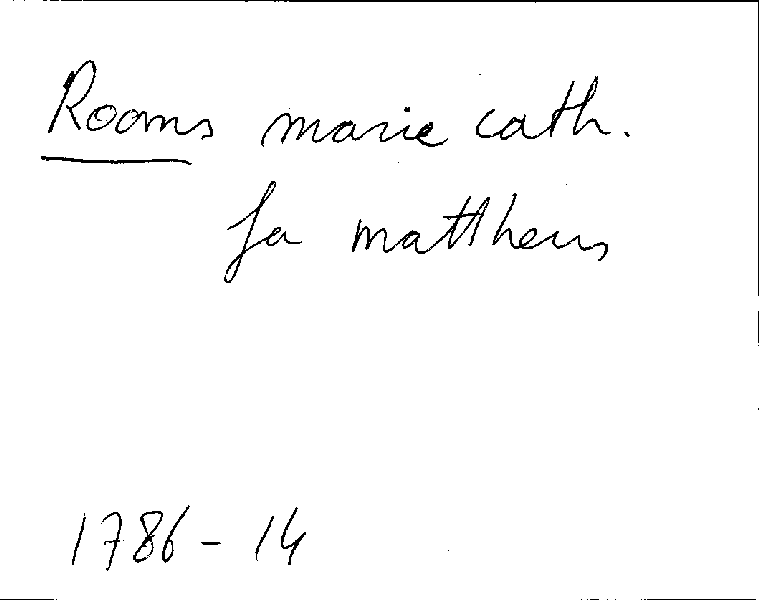 Rooms marie cath.
fa mattheus
1786 - 14